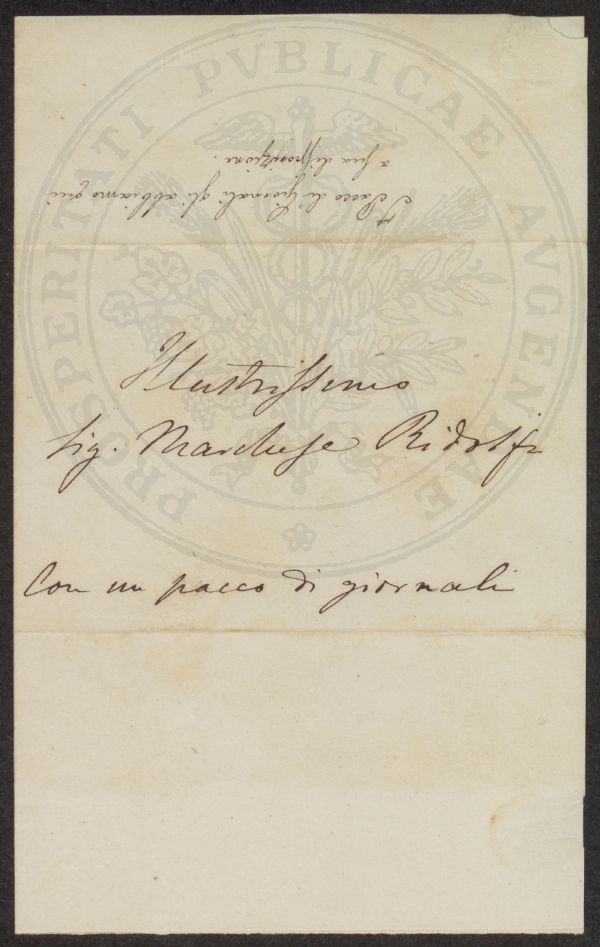 PROSPERITATI PVBLICAE AVGENDAE
Il Pacco di Giornali gli abbiamo quì
a sua disposizione.
Illustrissimo
Sig. Marchese Ridolfi
Con un pacco di giornali